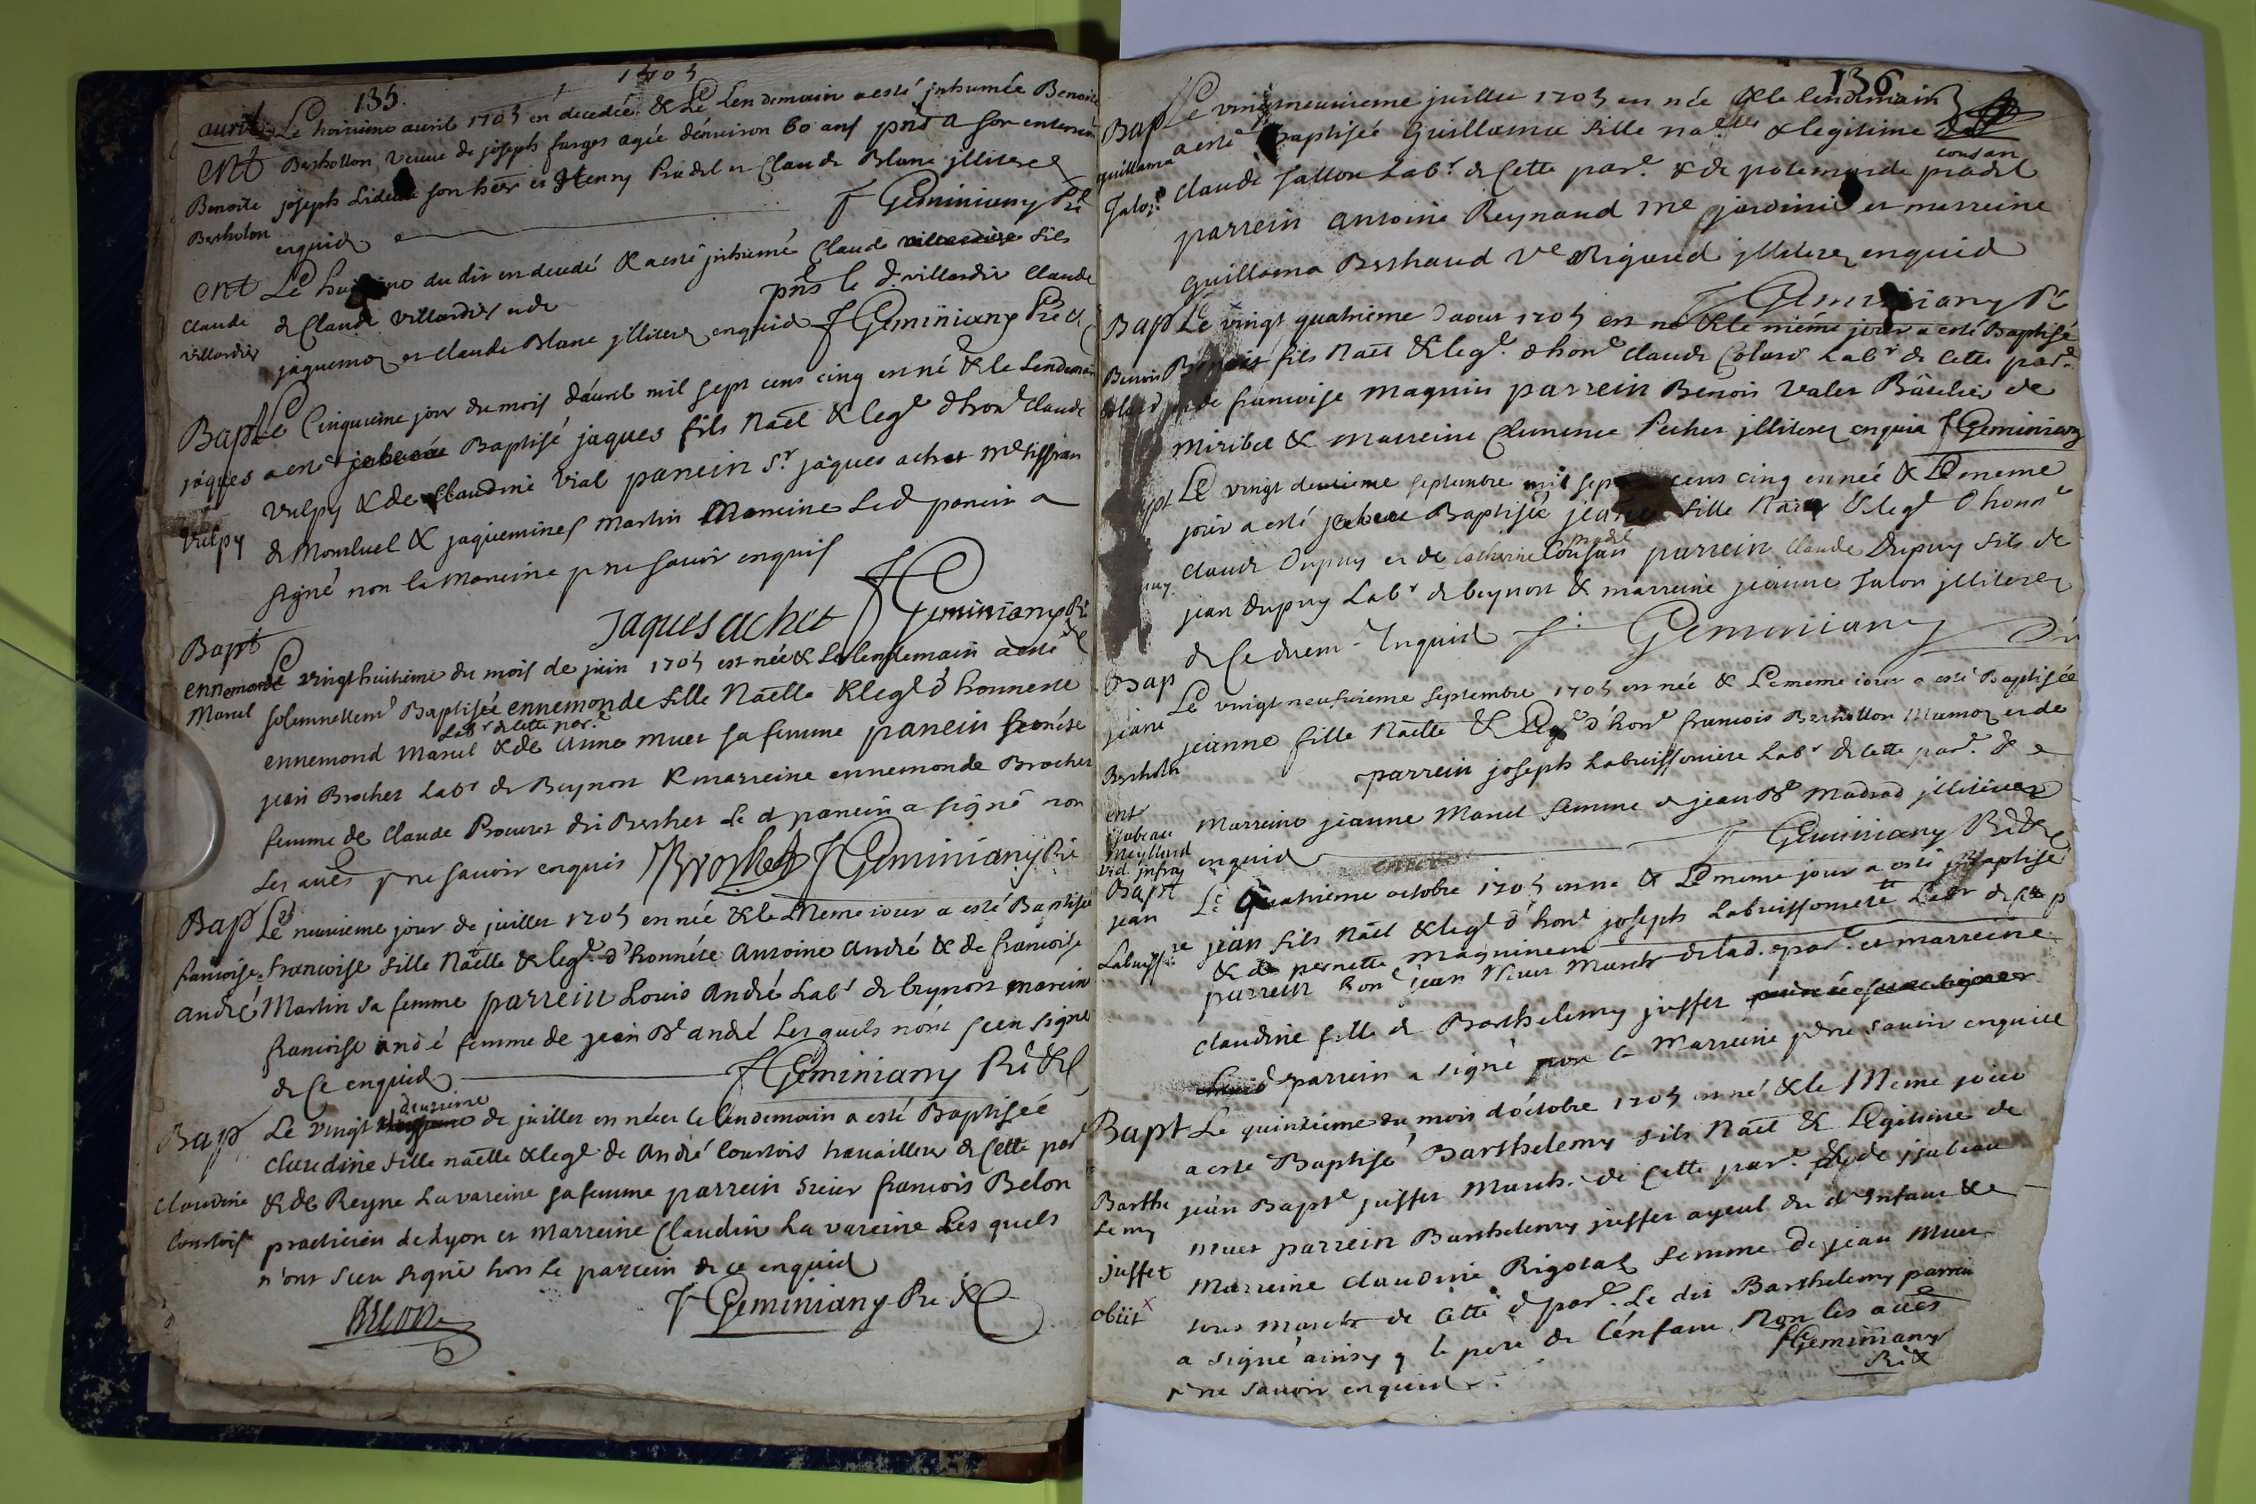 1705
135.
avril
Le troisieme avril 1705 est decedée & Le Lendemain a esté inhumée Benoite
ent
Benoite
Bertholon
Berthollon veuve de joseph farges agée d'environ 60 ans pnts a son enterremt
joseph son herr et Henry Pradel et Claude Blanc jlliterez
enquis
F Geminiany Pre
ent
Claude
villardier
Le du dit est decedé & a esté inhumé Claude fils
de Claude villardier et de pnts le d. villardier Claude
jaquemoz et Claude Blanc jlliterez enquis F Geminiany Pre &
Bapt
jaques
vulpy
Le Cinquieme jour du mois d'avril mil sept cens cinq est né & le Lendemain
a esté Baptisé jaques fils Natl & legᵉ d'honᵉ Claude
vulpy & de Claudine Vial parrein Sr jaques achet Me tissran
de Montluel & jaquemines Martin Marreine Led parrein a
signé non la Marreine p ne savoir enquis
Jaques achet F Geminiany Pre &
Bapt
ennemonde
Manel
Le vingt huitieme du mois de juin 1705 est née & Le lendemain a esté
solemnellemt Baptisée ennemonde fille Naelle & legᵉ d'honneste
Labr de cette parᵉ
ennemond Manel & de Anne Muet sa femme parrein honéste
jean Brochet Labr de Beynost & marreine ennemonde Brochet
femme de Claude dit Berthet Le d parrein a signé non
Les aues p ne savoir enquis JBrochet F Geminiany Pre
Bap
francoise
andré
Le neuvieme jour de juillet 1705 est née & le Meme iour a esté Baptisée
francoise fille Naelle & legᵉ d'honnéte Antoine André & de francoise
Martin sa femme parrein Louis André Labr de beynost marreine
francoise andé femme de jean Bᵗ andré Lesquels n'ont sceu signé
de Ce enquis F Geminiany Pre &
Bap
Claudine
Courtois
deuxieme
Le vingt de juillet est née et le lendemain a esté Baptiseé
Claudine fille naelle & legᵉ de André Courtois travailleur de Cette par
& de Reyne Lavareine sa femme parrein Sieur francois Belon
practicien de Lyon et Marreine Claudin La vareine Les quels
n'ont sceu signé hors le parrein de ce enquis
Belon F Geminiany Pre &
136
Bap
guillama
Talon
Le vingtneuvieme juillet 1705 est née & le lendemain
a esté Baptisée Guillauma fille naelle & legitime
cousan
Claude Tallon Labr de Cette parᵉ & de polemonde pradel
parrein Antoine Reynaud Me jardinié et marreine
Guillama Berthaud Vᵉ Rigaud jlliterez enquis
F Geminiany Pre
Bap
Benois
Colard
Le vingt quatrieme d'aout 1705 est né & le méme jour a esté Baptisé
Benois fils Natl & legᵉ d'honᵉ Claude Colard Labr de Cette parᵉ
& de francoise Magnin parrein Benois Valet Batelier de
Miribel & Marreine Clemence Pechet jlliterez enquis F Geminiany
Le vingt deuxieme septembre mil sept cens cinq est née & Le meme
jour a esté Baptisée jeanne fille Naelle & legᵉ d'honnᵉ
pradel
Claude Dupuy et de Catherine Cousan parrein Claude Dupuy fils de
jean dupuy Labr de beynost & marreine jeanne Talon jlliterez
de Ce duem. Enquis F. Geminiany
Bap
jeane
Berthollon
Le vingt neufvieme septembre 1705 est née & Le meme iour a esté Baptisée
jeanne fille Naelle & Legᵉ d'honᵉ francois Berthollon Mumoz et de
parrein joseph Labuissonniere Labr de Cette parᵉ &
Marreine jeanne Manel femme de jean Bᵗ jlliterez
enquis F Geminiany Pre &
ent
jsabeau
Meyllard
vid. infra
Bapt
jean
Labuissre
Le Quatrieme octobre 1705 est né & Le meme jour a esté Baptisé
jean fils Natl & legᵉ d'honᵉ joseph Labuissoniere Labr de Cette p
& de pernette Magninent
parrein honᵉ jean Muet March de lad. parᵉ et marreine
Claudine fille de Barthelemy juffet
parrein a signé non la Marreine p ne savoir enquise
Bapt
Barthe
Lemy
juffet
obiit
Le quinzieme du mois d'octobre 1705 est né & le Meme jour
a esté Baptisé Barthelemy fils Natl & Legitime de
jean Baptᵉ juffet March. de Cette parᵉ & de jsabeau
Muet parrein Barthelemy juffet ayeul du d Enfant &
Marreine Claudine Rigolat femme de jean Muet
tous march de Cette d parᵉ Le dit Barthelemy parrein
a signé ainsy q le pere de L'enfant Non les aues
p ne savoir enquis.
F Geminiany
Pre &